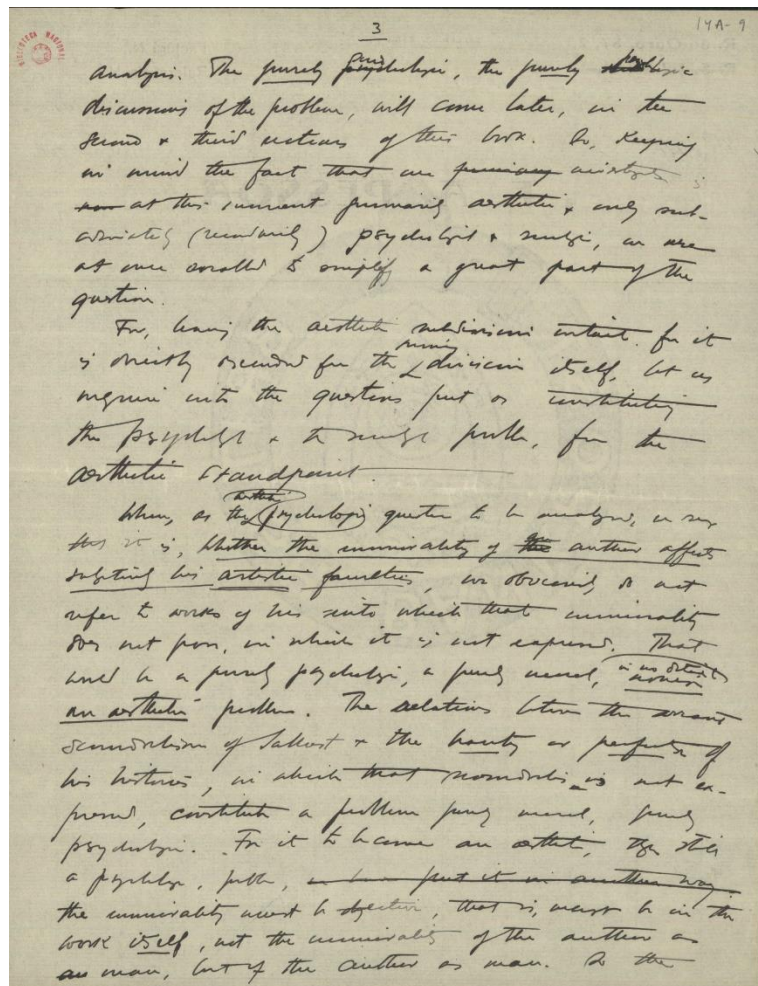 3
14A-9
BIBLIOTECA NACIONAL
analysis. The purely psychologic, the purely
discussions of the problem, will come later, in the
second & third sections of this book. So, keeping
in mind the fact that our
at this moment primarily aesthetic & only sub-
ordinately (secondarily) psychologic &, we are
at once enabled to simplify a great part of the
question.
For, leaving the aesthetic subdivision intact, for it
is directly for the division itself, let us
inquire into the questions put as constituting
the psychologic & the problem, from the
aesthetic standpoint.
When, as the artistic psychologic question to be analysed, we say
that it is, whether the immorality of the author affects
his artistic faculties, we obviously do not
refer to works of his into which that immorality
does not pass, in which it is not expressed. That
would be a purely psychologic, a purely moral, in no sense
an aesthetic problem. The relations between the
scoundrelism of Sallust & the beauty or perfection of
his histories, in which that scoundrelism is not ex-
pressed, constitute a problem purely moral, purely
psychologic. For it to become an aesthetic, though still
a psychologic, problem, or to put it in another way
the immorality must be objective, that is, must be in the
work itself, not the immorality of the author as
man, but of the author as man. So the